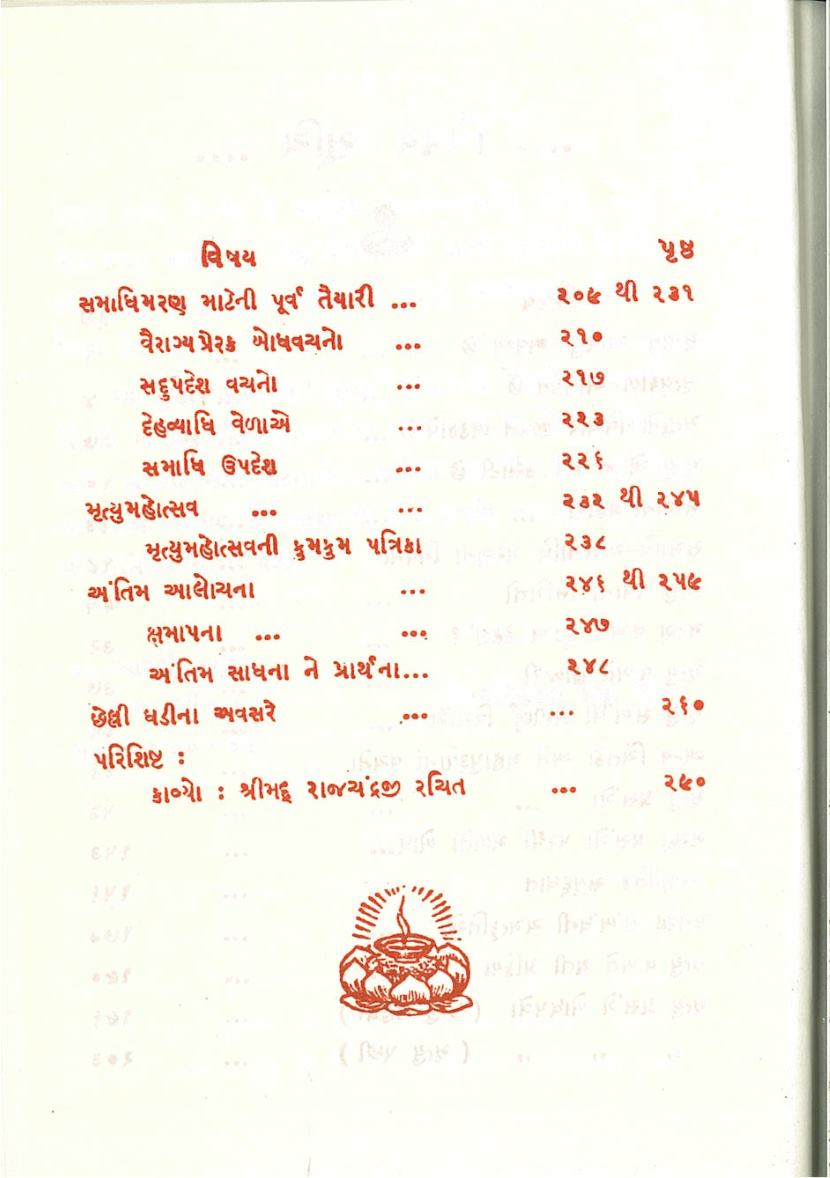 વિષય પૃષ્ઠ
સમાધિમરણ માટેની પૂર્વ તૈયારી ... ૨૦૯ થી ૨૩૧
વૈરાગ્યપ્રેરક બોધવચનો ... ૨૧૦
સદ્દુપદેશ વચનો ... ૨૧૭
દેહવ્યાધિ વેળાએ ... ૨૨૩
સમાધિ ઉપદેશ ... ૨૨૬
મૃત્યુમહોત્સવ ... ... ૨૩૨ થી ૨૪૫
મૃત્યુમહોત્સવની કુમકુમ પત્રિકા ૨૩૮
અંતિમ આલોચના ... ૨૪૬ થી ૨૫૯
ક્ષમાપના ... ... ૨૪૭
અંતિમ સાધના ને પ્રાર્થના... ૨૪૮
છેલ્લી ઘડીના અવસરે ... ... ૨૬૦
પરિશિષ્ટ :
કાવ્યો : શ્રીમદ્ રાજચંદ્રજી રચિત ... ૨૯૦